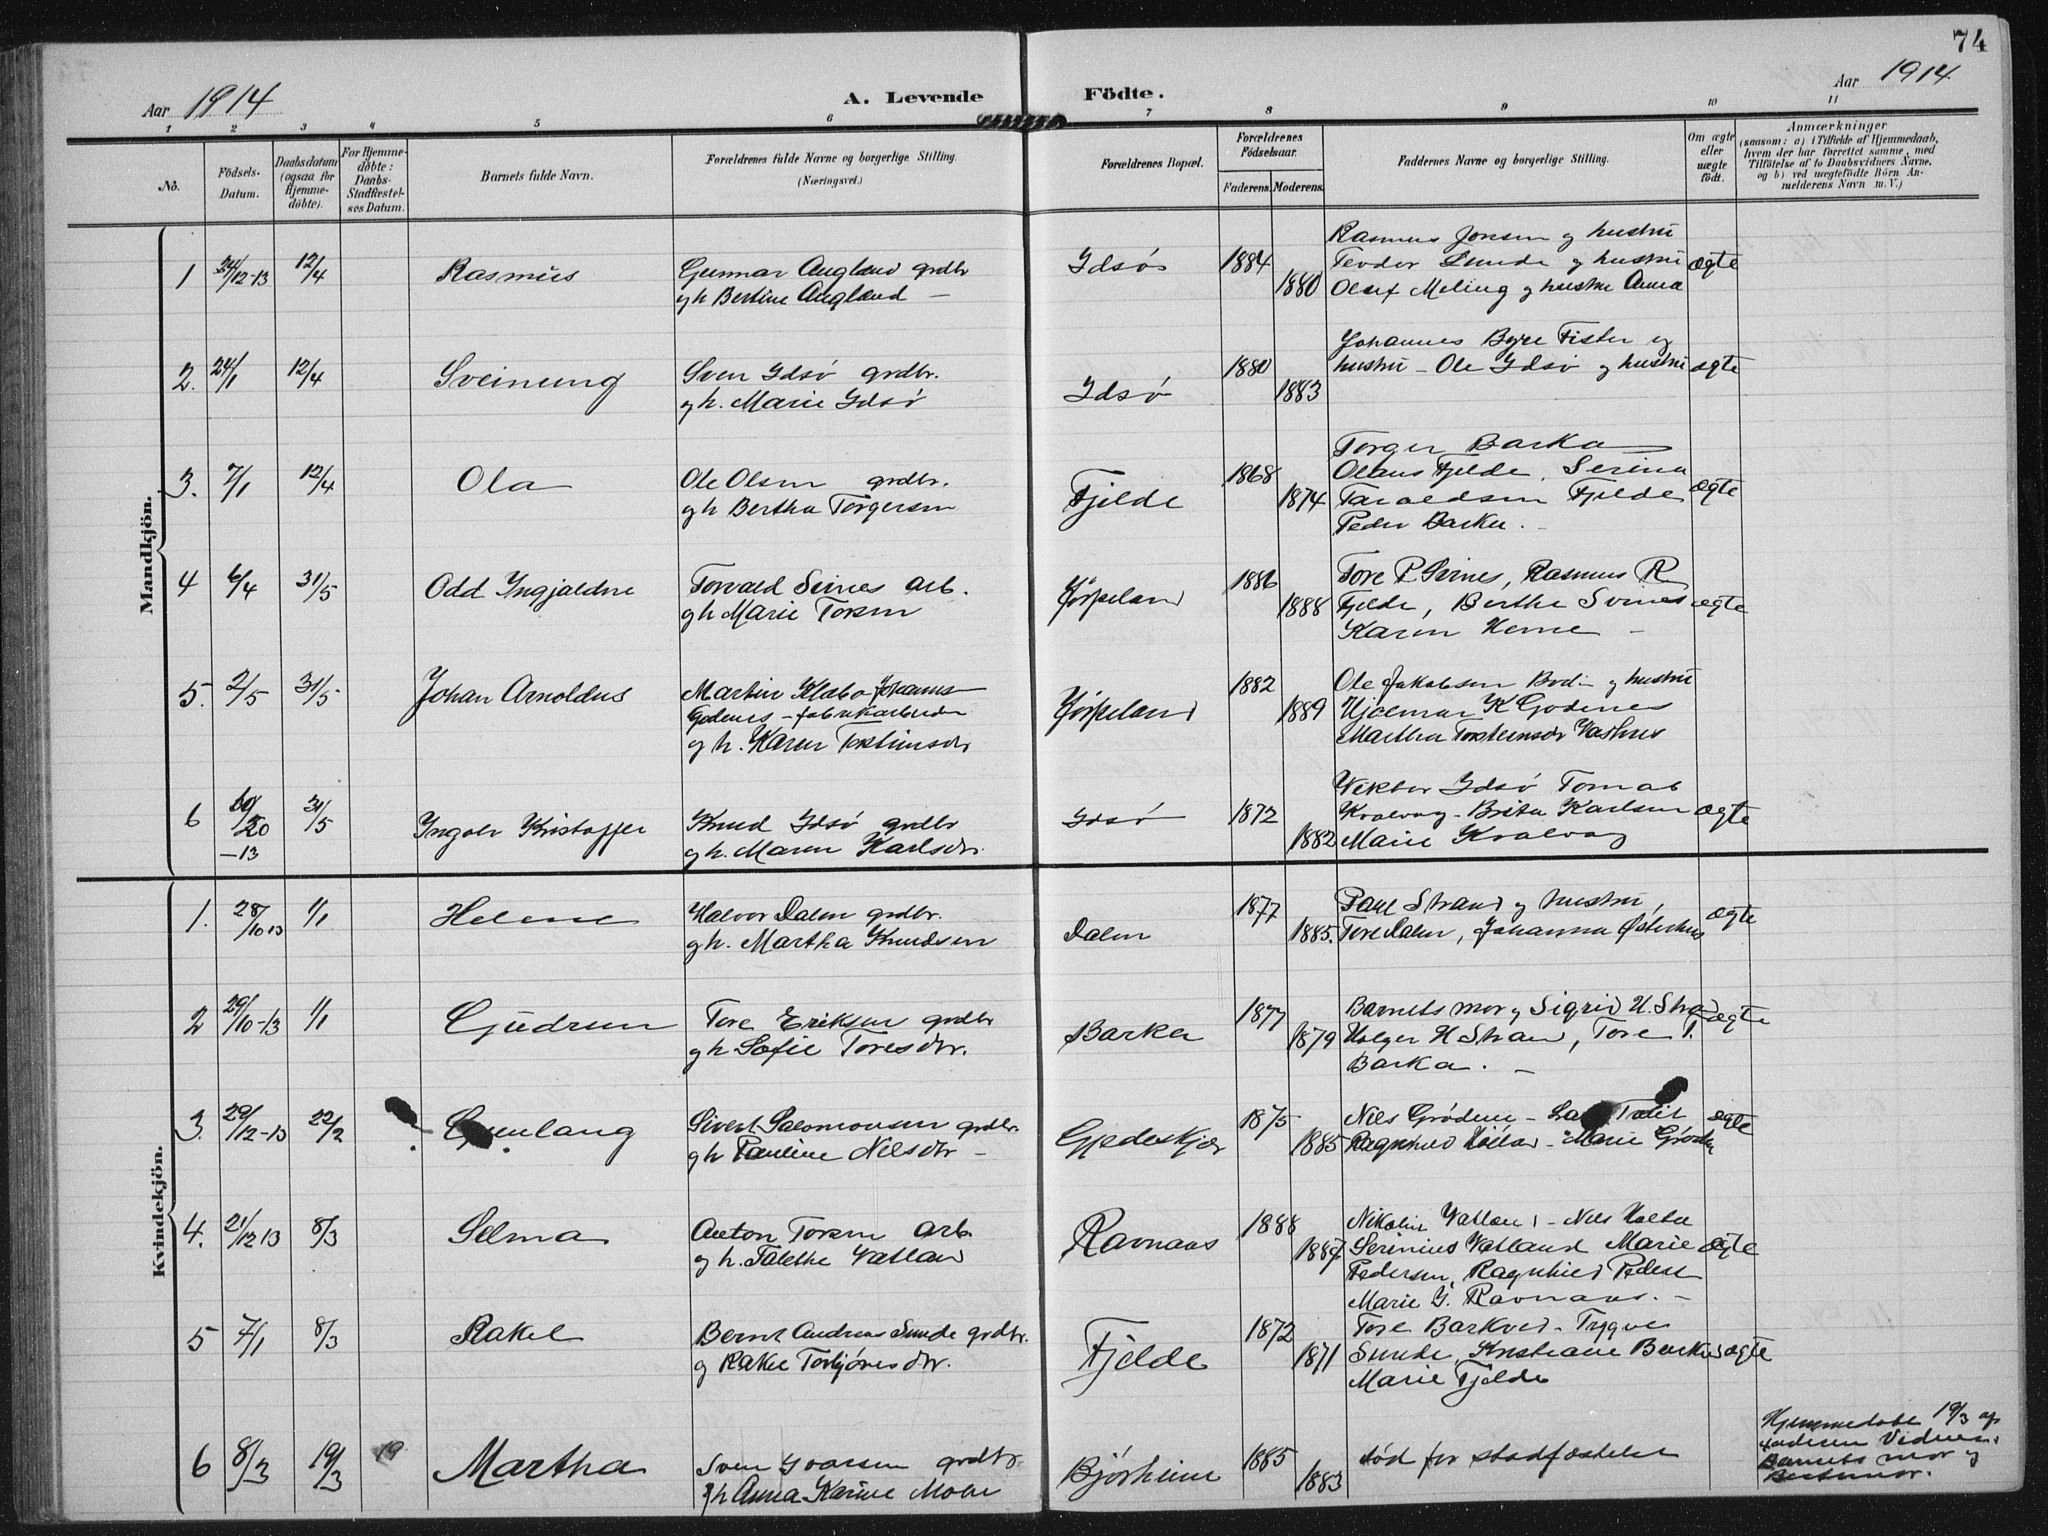 74
Aar 1914
A. Levende Födte.
Aar 1914
1 2 3 4 5 6 7 8 9 10 11
No.
Födsels-Datum.
Daabsdatum (ogsaa for Hjemme-döbte).
For Hjemme-döbte: Daabs-Stadfæstel-ses Datum.
Barnets fulde Navn.
Forældrenes fulde Navne og borgerlige Stilling.
(Næringsvei.)
Forældrenes Bopæl.
Forældrenes Födselsaar.
Faderens. Moderens.
Faddernes Navne og borgerlige Stilling.
Om ægte eller uægte födt.
Anmærkninger
(saasom: a) i Tilfælde af Hjemmedaab, hvem der har forrettet samme, med Tilföielse af to Daabsvidners Navne, og b) ved uægtefödte Börn An-melderens Navn m. V.)
Mandkjön.
1 24/12-13 12/4 Rasmus Gunnar Augland grdbr Idsø 1884 Rasmus Jonsen og hustru
Teodor Sunde og hustru ægte
og h Bertine Augland – 1880 Olaf Meling og hustru Anna
2. 24/1 12/4 Sveinung Sven Idsø grdbr. 1880 Johannes Byre Fister og
hustru – Ole Idsø og hustru ægte
og h. Marie Idsø Idsø 1883
3. 7/1 12/4 Ola Ole Olsen grdbr. Fjelde 1868 Torger Barka
Olaus Fjelde, Serina
og h Bertha Torgersen 1874 Taraldsen Fjelde ægte
Peder Barka. –
4 6/4 31/5 Odd Ingjaldne Torvald Svines arb. Jørpeland 1886 Tore P. Svines, Rasmus R
og h Marie Torsen 1888 Fjelde, Berthe Svines ægte
Karen –
5. 2/5 31/5 Johan Arnoldus Martin Johannes 1882 Ole Jakobsen Bodi og hustru
Godenes – fabrikarbeider Jørpeland 1889 Hjalmar K Godenes
og h. Karen Martha
6 20 -13 31/5 Ingolv Kristoffer Knud Idsø grdbr Idsø 1872 Viktor Idsø
Kvalvag – Brita Karlsen ægte
og h. Maren Karlsdtr. 1882 Marie Kvalvag
Kvindekjön.
1. 28/10 13 1/1 Helene Halvor Dalen grdbr. 1877 Paul Strand og hustru, ægte
og h. Martha Knudsen Dalen 1885. Tore Dalen, Johanna Østerhus
2 29/10-13 1/1 Gudrun Tore Eriksen grdbr 1877 Barnets mor og Sigrid H. Strand ægte
og h Sofie Toresdtr. Barka 1879 Holger H Strand, Tore T.
Barka. –
3. 29/12-13 22/2 Gunlang Sivert Salomonsen grdbr. 1875 Nils Grødem – ægte
og h Pauline Nilsdtr – Gjedeskjær 1885 Ragnhild – Marie Grødem
4. 21/12 13 8/3 Selma Anton Torsen arb. Ravnaas 1888 Nikolin Vatland – Nils Holta
og h. Talethe Vatland 1887 Serinius Vatland Marie ægte
Pedersen, Ragnhild Peders
Marie G. Ravnaas. –
5 7/1 8/3 Rakel Bernt Andreas Sunde grdbr. Fjelde 1872 Tore Barkved – Trygve
og Rakel Torbjørnsdtr. 1871 Sunde, Kristiane Barkved ægte
Marie Fjelde
6 8/3 19/3 19 Martha Sven Ivarsen grdbr. Bjørheim 1885 død før stadfæstelse
og h Anna Karine Moen 1883
Hjemmedøbt 19/3 af
faderen Vidner:
Barnets mor og
Bestemor.